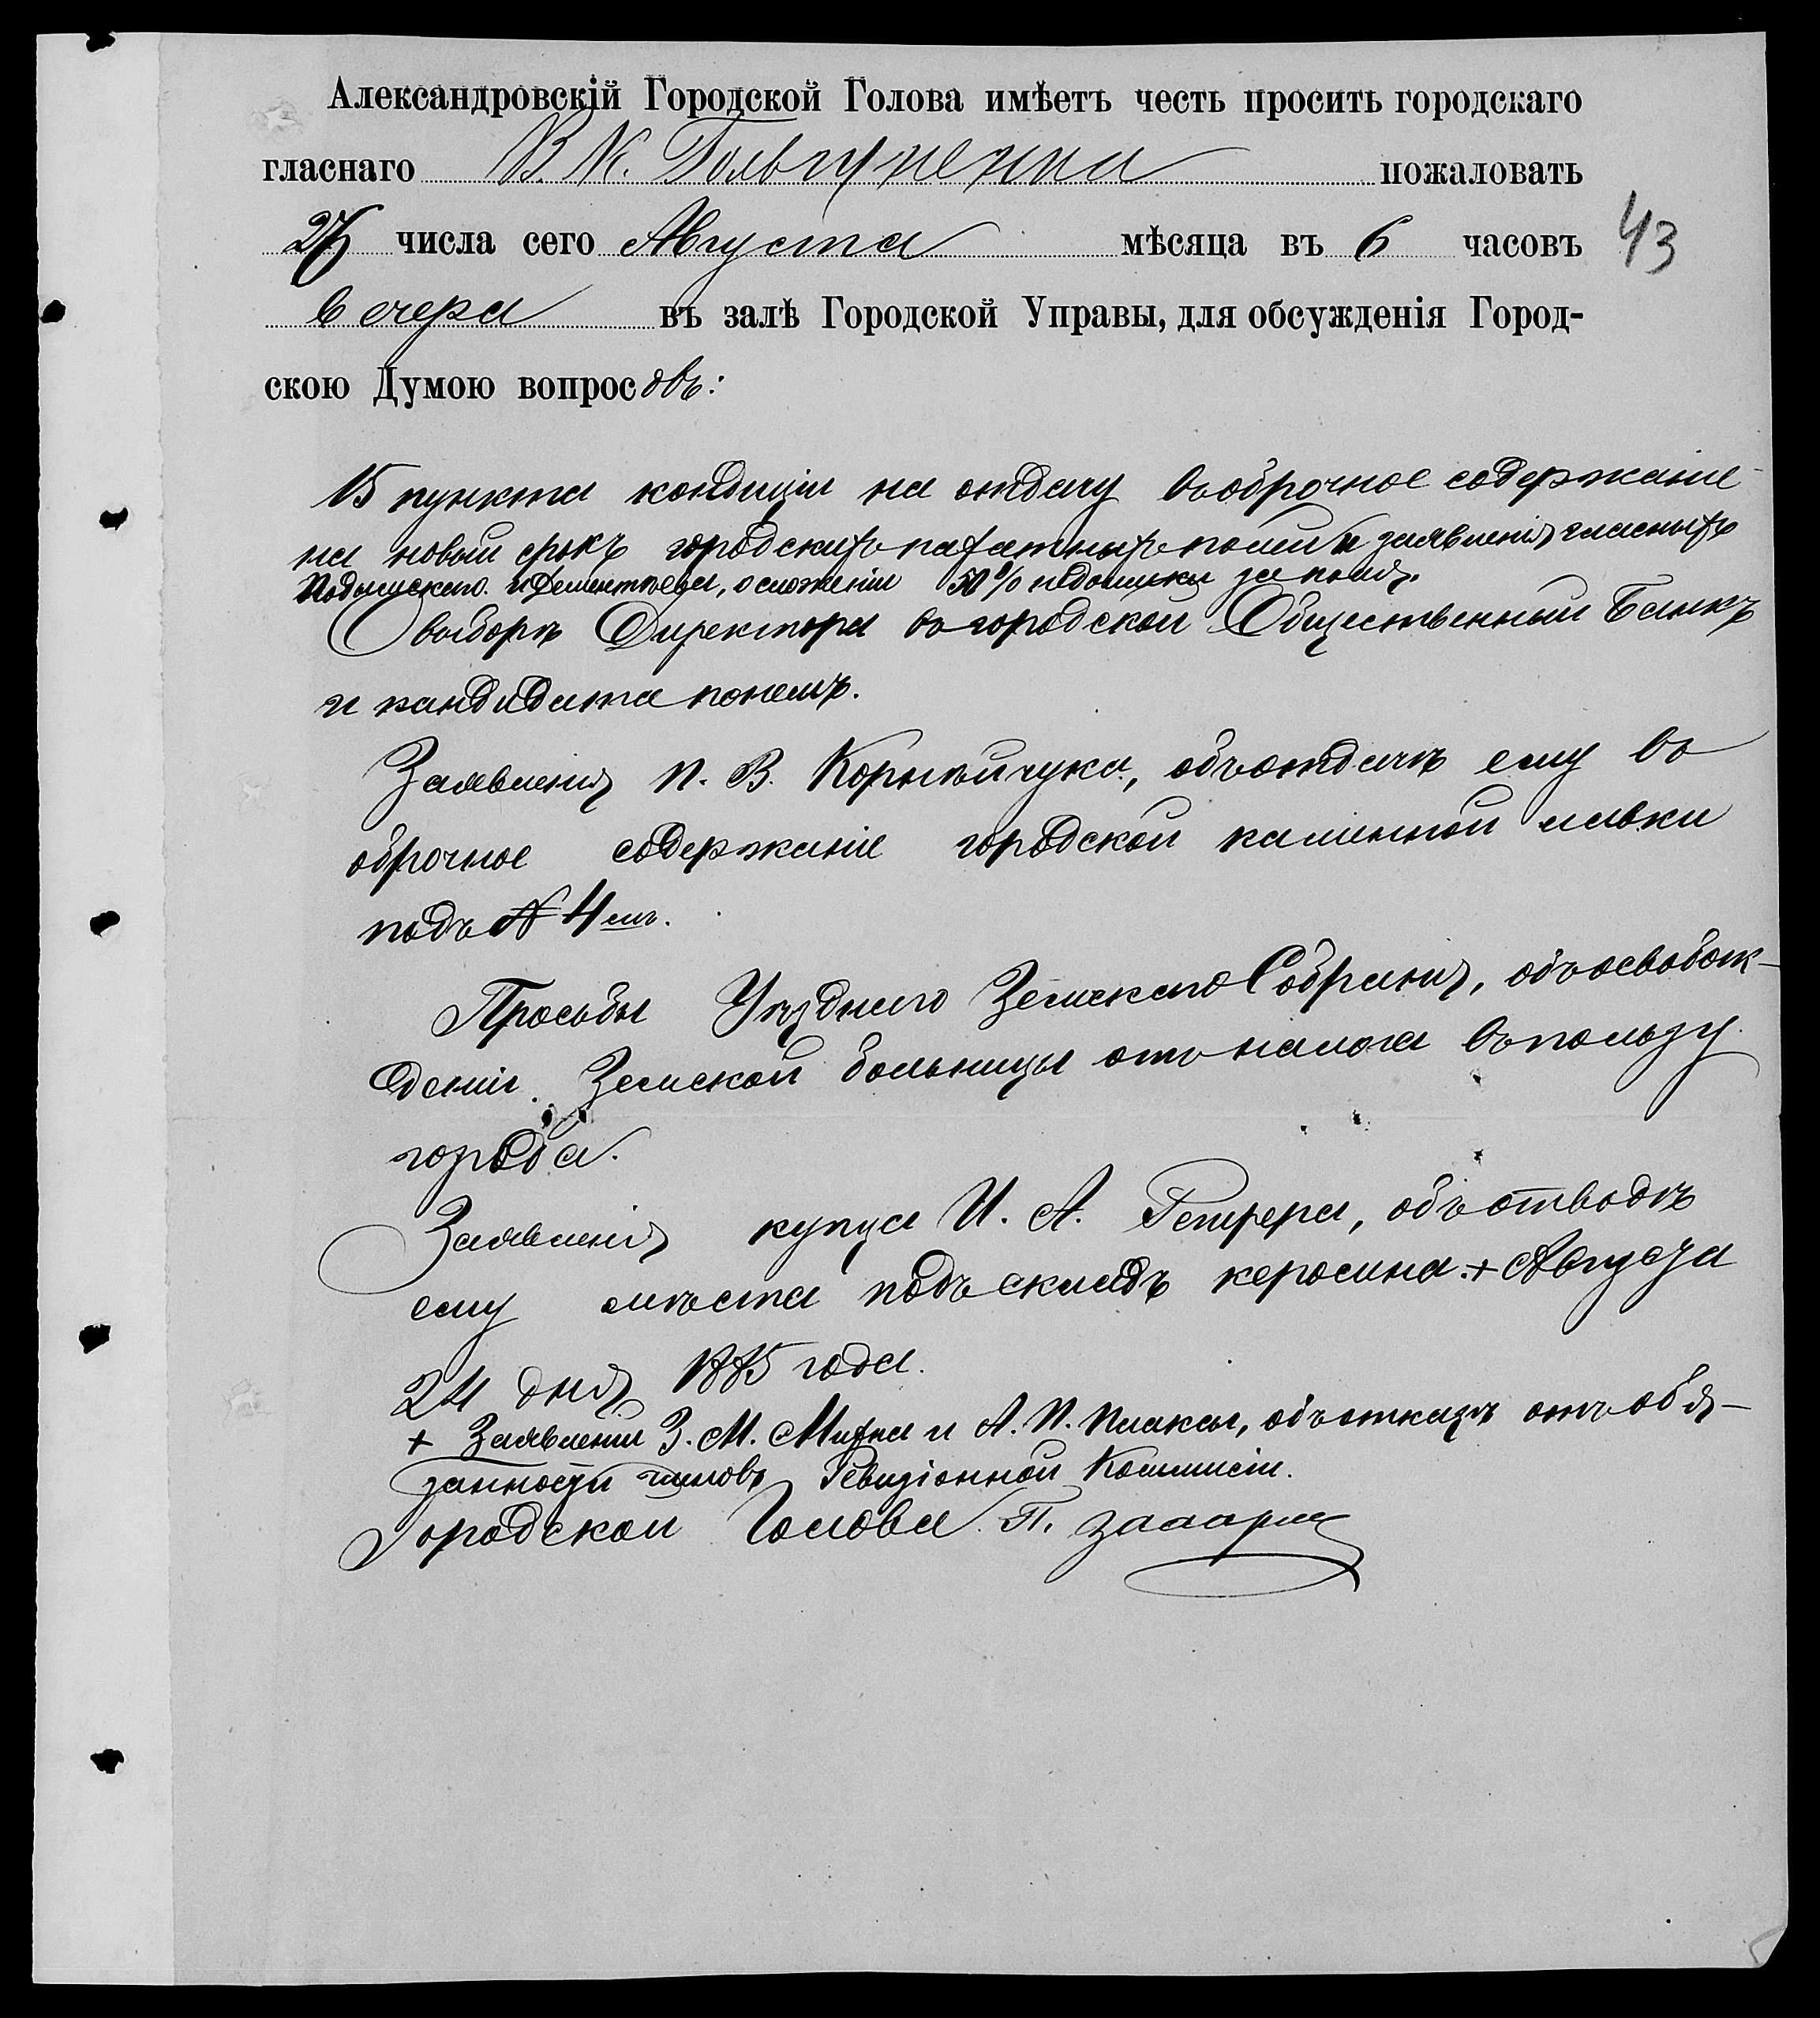 Александровскій Городской Голова имѣетъ честь просить городскаго
гласнаго В. К. пожаловать
27 числа сего Августа мѣсяца въ 6 часовъ
43
вечера въ залѣ Городской Управы, для обсужденія Город-
скою Думою вопросовъ:
15 пункта кондиціи на отдачу въ оброчное содержаніе
на новый срокъ городскихъ пахатныхъ полей и заявленія гласныхъ
и Дементьева, о сложеніи 50% недоимки за поля.
О выборѣ Директора въ городской Общественный Банкъ
и кандидата по немъ.
Заявленія П. В. Корнѣйчука, объ отдачѣ ему въ
оброчное содержаніе городской каменной лавки
подъ № 4мъ.
Просьбы Уѣзднаго Земскаго Собранія, объ освобож-
деніи Земской больницы отъ налога въ пользу
города.
Заявленія купца И. А. , объ отводѣ
ему мѣста подъ складъ керосина. + Августа
24 дня 1885 года.
+ Заявленія З. М. Михна и А. П. Плаксы, объ отказѣ отъ обя-
занности членовъ Ревизіонной Коммисіи.
Городской Голова П.